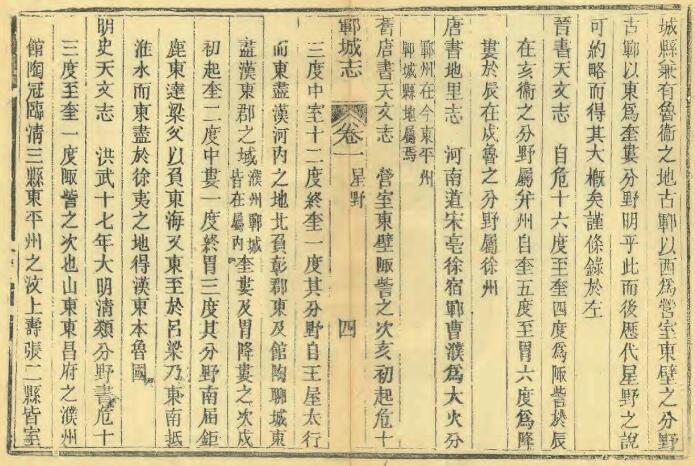 城縣兼有魯衞之地古鄆以西爲營室東壁之分野
古鄆以東爲奎婁分野明乎此而後歷代星野之說
可約略而得其大槪矣謹條錄於左
晉書天文志 自危十六度至奎四度爲陬訾於辰
在亥衞之分野屬幷州自奎五度至胃六度爲降
婁於辰在戌魯之分野屬徐州
唐書地里志 河南道宋亳徐宿鄆曹濮爲大火分
鄆州在今東平州
鄆城縣地屬焉
舊唐書天文志 營室東壁陬訾之次亥初起危十
鄆城志 卷一 星野 四
三度中室十二度終奎一度其分野自王屋太行
而東盡漢河內之地北負彰郡東及館陶聊城東
盡漢東郡之域 濮州鄆城皆在屬內 奎婁及胃降婁之次戌
初起奎二度中婁一度終胃三度其分野南屆鉅
鹿東達梁父以負東海又東至於呂梁乃東南抵
淮水而東盡於徐夷之地得漢東本魯國
明史天文志 洪武十七年大明清類分野書危十
三度至奎一度陬訾之次也山東東昌府之濮州
館陶冠臨清三縣東平州之汶上壽張二縣皆室